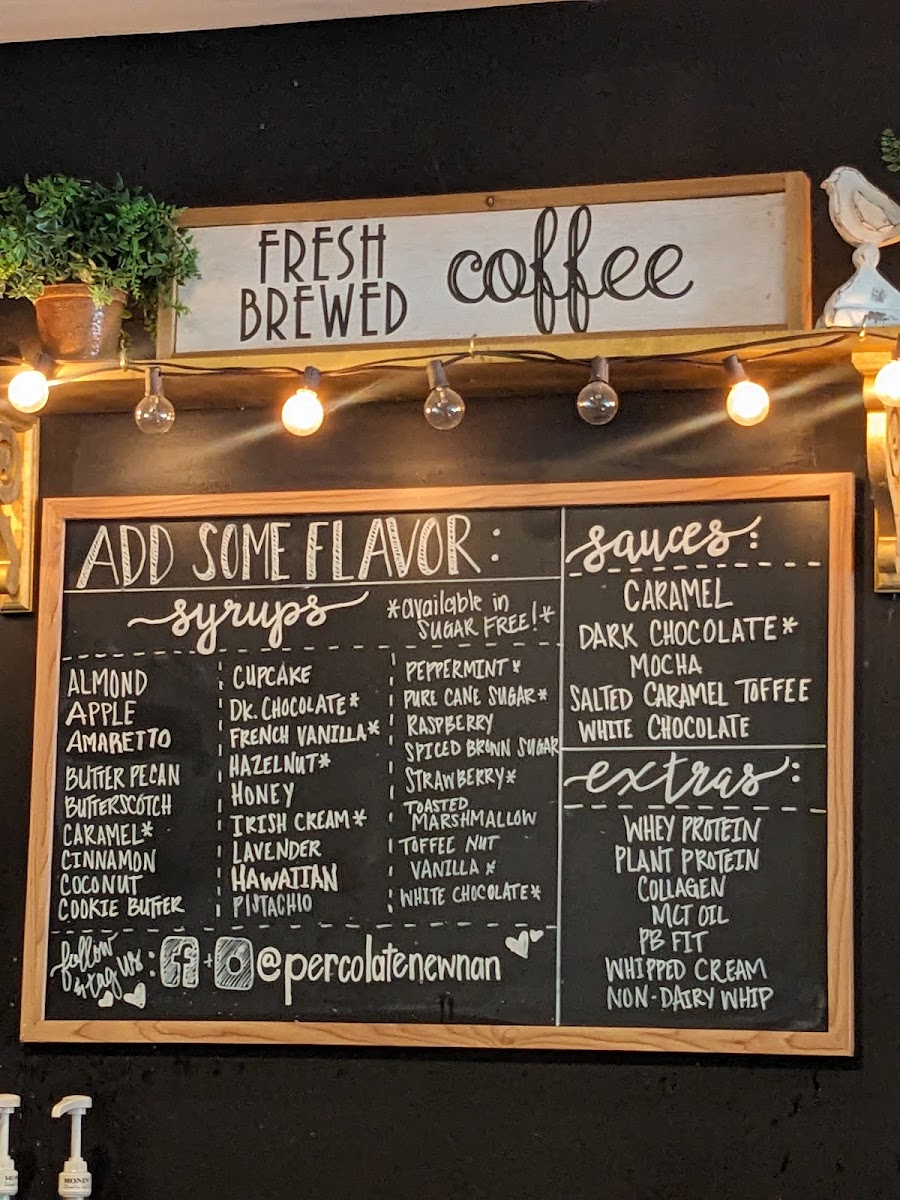 FRESH
BREWED
coffee
ADD SOME FLAVOR:
syrups
*available in
SUGAR FREE!*
ALMOND
APPLE
AMARETTO
BUTTER PECAN
BUTTERSCOTCH
CARAMEL*
CINNAMON
COCONUT
COOKIE BUTTER
CUPCAKE
DK. CHOCOLATE*
FRENCH VANILLA*
HAZELNUT*
HONEY
IRISH CREAM*
LAVENDER
HAWAIIAN
PISTACHIO
PEPPERMINT*
PURE CANE SUGAR*
RASPBERRY
SPICED BROWN SUGAR
STRAWBERRY*
TOASTED
MARSHMALLOW
TOFFEE NUT
VANILLA*
WHITE CHOCOLATE*
follow
& tag us: f + @percolatenewnan
sauces:
CARAMEL
DARK CHOCOLATE*
MOCHA
SALTED CARAMEL TOFFEE
WHITE CHOCOLATE
extras:
WHEY PROTEIN
PLANT PROTEIN
COLLAGEN
MCT OIL
PB FIT
WHIPPED CREAM
NON-DAIRY WHIP
MONIN